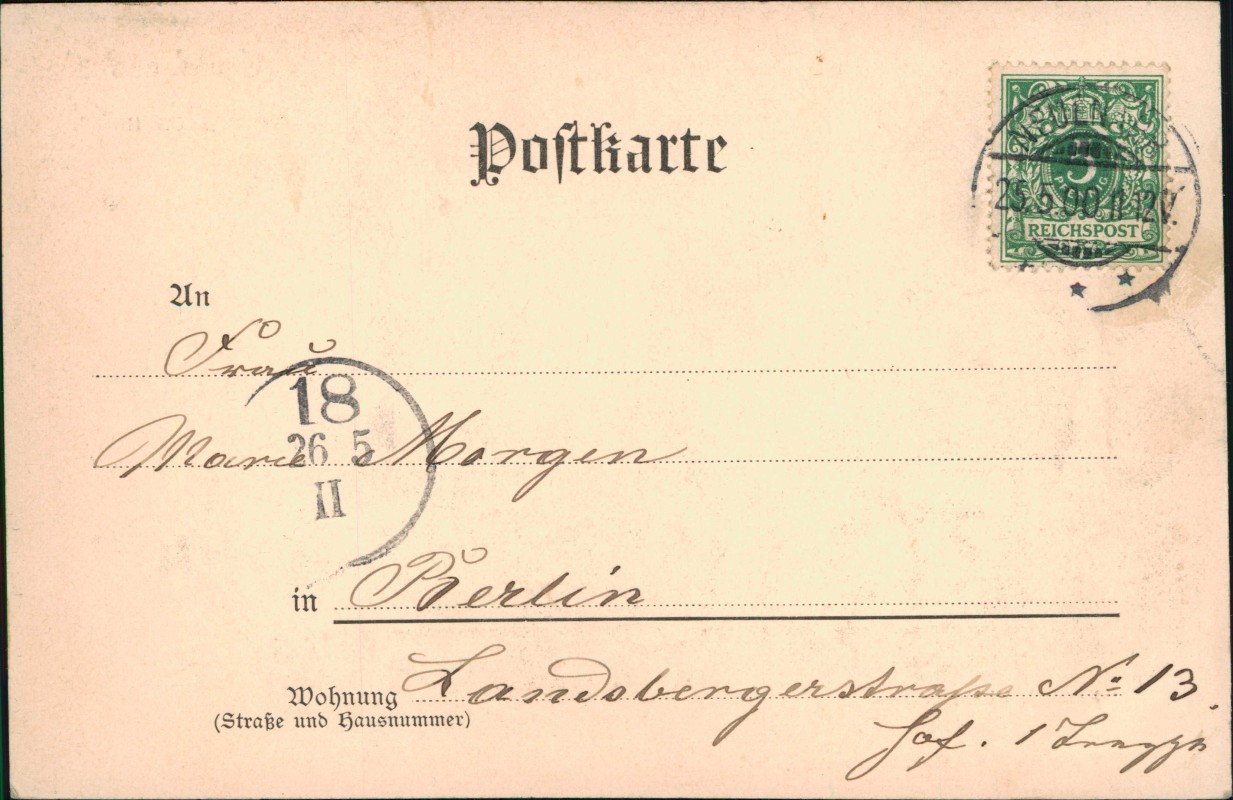 Postkarte
5
PFENNIG
REICHSPOST
25.5.00.11-12V.
An
Frau
18
26 5
II
Marie Morgen
in Berlin
Wohnung Landsbergerstraße No 13.
(Straße und Hausnummer)
Hof. 1 Treppe